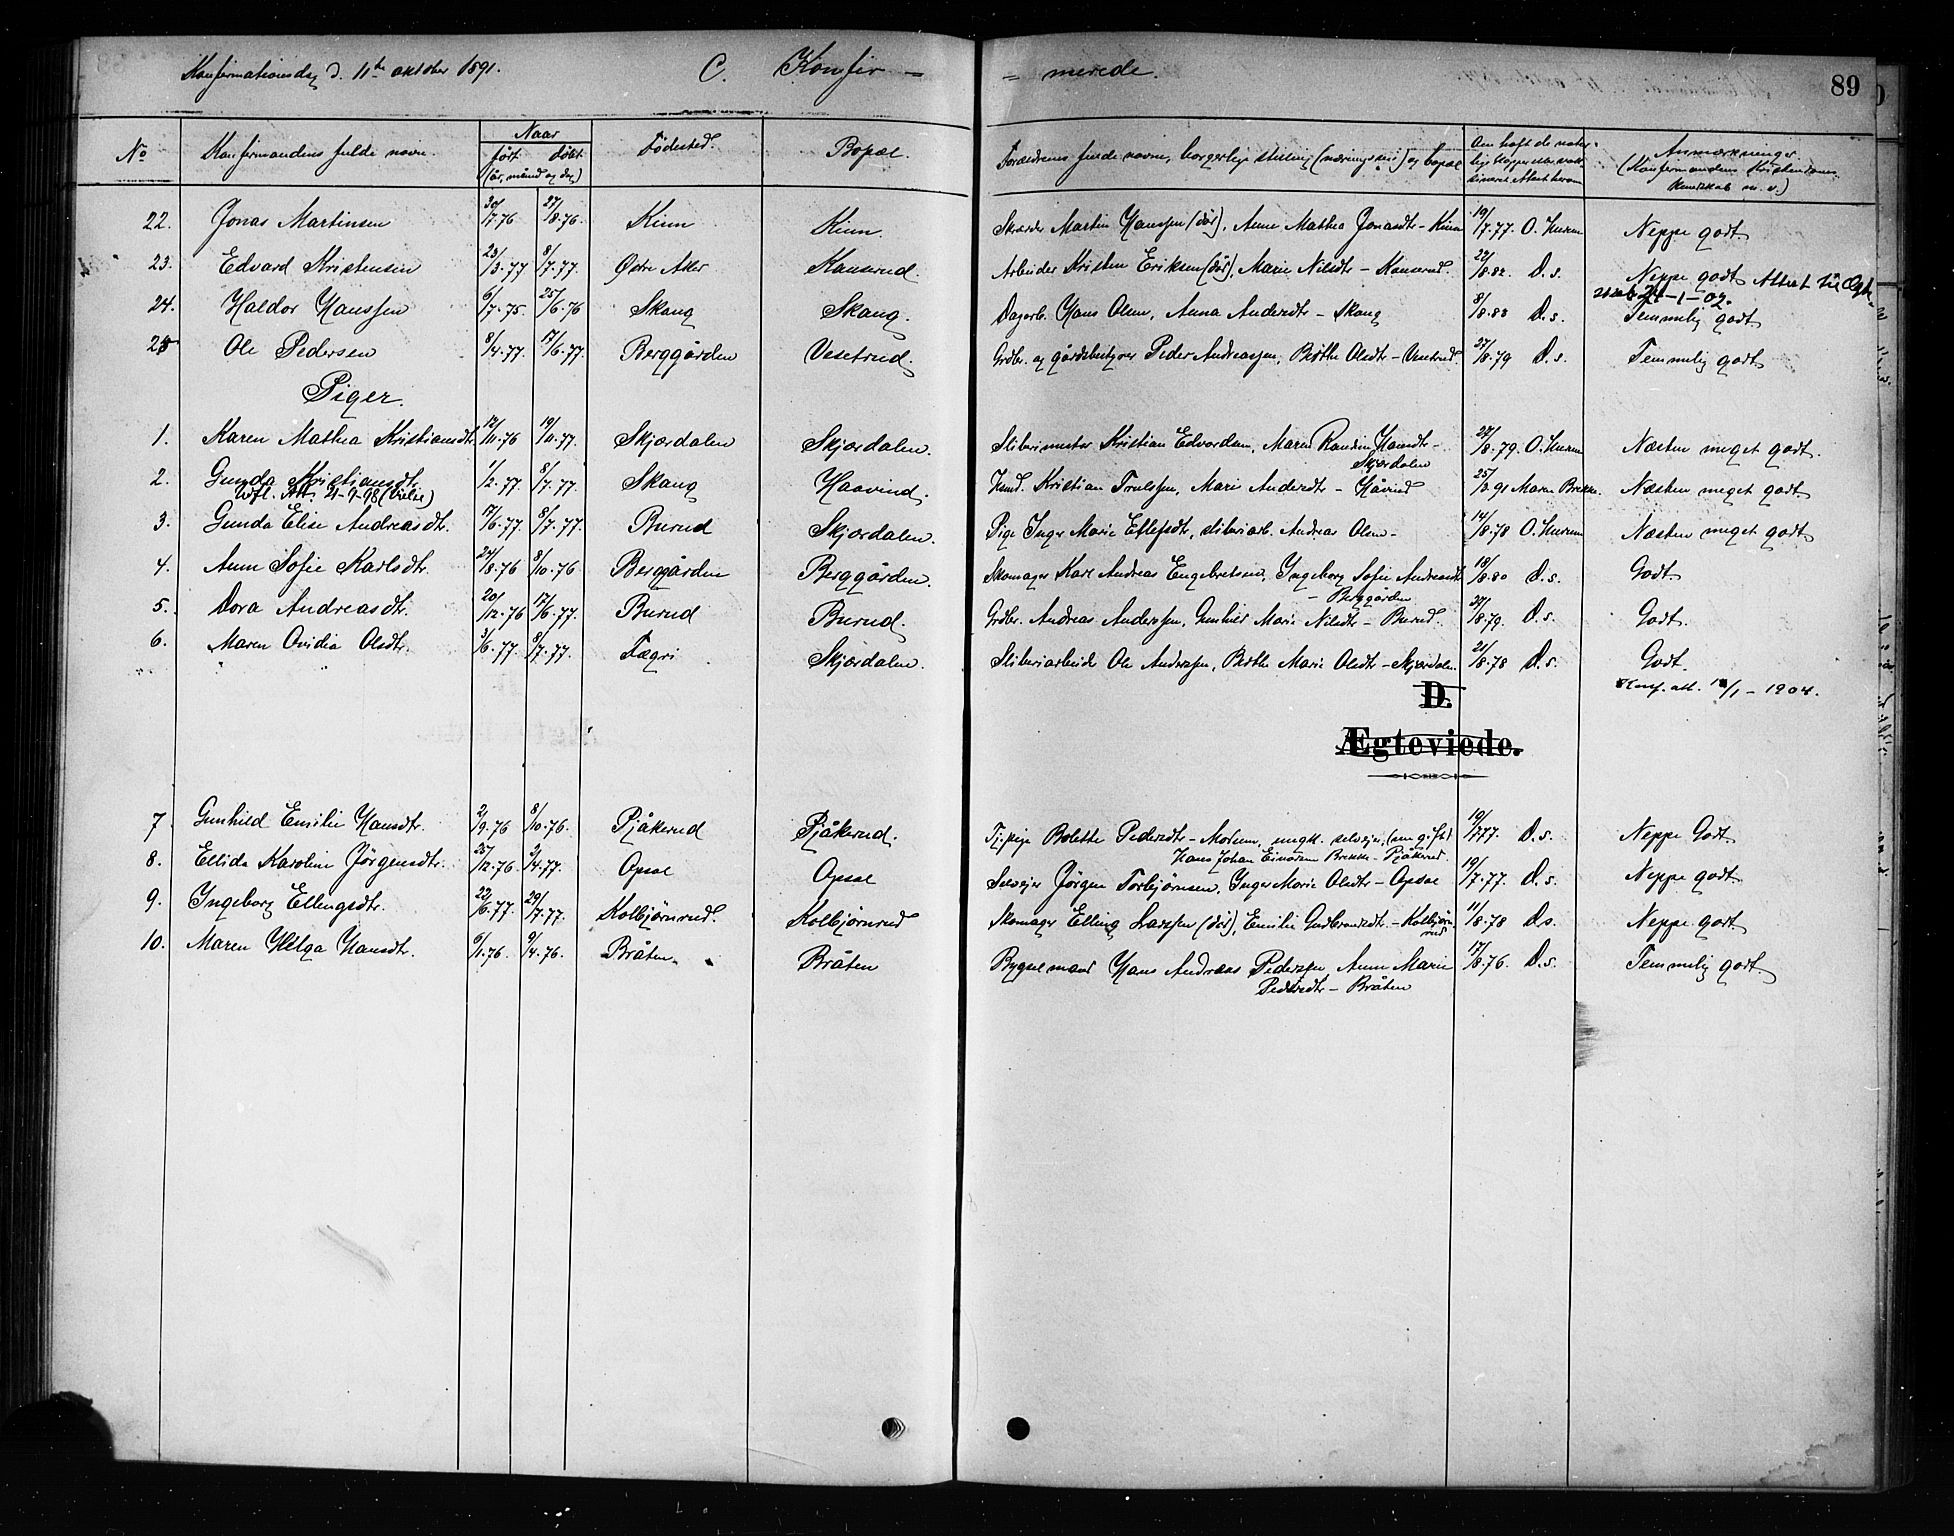 Konfirmationsdag d. 11te oktober 1891. C. Konfir – = merede. 89
No Konfirmandens fulde navn. Naar født døbt (år, måned og dag) Fødested. Bopæl. Forældrenes fulde navne, borgerlige stilling (næringsvei) og bopæl Anmærkninger. (Konfirmandens Kristendoms kundskab m. v.)
22. Jonas Martinsen 30/7.76 27/8.76 Kinn Kinn. Skræder Martin Hanssen (død), Anne Mathea Jonasdtr – Kinn 19/7.77. Neppe godt
23. Edvard Kristensen 23/3.77 8/7.77. Østre Aker Kanserud. Arbeider Kristen Eriksen (død) Marie Nilsdtr – Kanserud. 22/8.82. D. s. Neppe godt Attest til Ægte-
24. Haldor Hanssen 6/7.75. 25/6.76 Skaug Skaug. Dagarb. Hans Olsen, Anna Andersdtr – Skaug 8/8.83 D. s. Temmelig godt
25 Ole Pedersen 8/4.77. 17/6.77. Berggården Vesetrud. Grdbr. og gårdsbestyrer Peder Andreassen, Berthe Olsdtr – Vesetrud. 27/8.79 D. s. Temmelig godt
Piger.
1. Karen Mathea Kristiansdtr 12/11.76 19/11.77. Skjærdalen Skjærdalen. Sliberimester Kristian Edvardsen, Maren Randine Hansdtr – 22/8.79. Næsten meget godt.
Skjærdalen
2. Gunda Kristiansdtr. 1/2.77. 8/7.77. Skaug Haavind. Kristian Trulssen, Mari Andersdtr – Håvind 25/3.91 Maren Brekke. Næsten meget godt
3. Gunda Elise Andreasdtr. 17/6.77. 8/7.77. Burud Skjærdalen. Pige Inger Marie Ellefsdtr, sliberiarb. Andreas Olsen – 14/8.78 Næsten meget godt
4. Anne Sofie Karlsdtr. 24/8.76 8/10.76 Berggården Berggården. Skomager Karl Andreas Engebretsen, Ingeborg Sofie Andreasdtr 18/8.80 D. s. Godt
– Berggården
5. Dora Andreasdtr. 20/12.76 17/6.77. Burud Burud. Grdbr. Andreas Anderssen, Gunhild Marie Nilsdtr – Burud. 29/8.79. D. s. Godt.
6. Maren Ovidia Olsdtr. 3/6.77. 8/7.77. Fægri Skjærdalen. Sliberiarbeider Ole Anderssen, Berthe Marie Olsdtr – Skjærdalen. 21/8.78 D. s. Godt.
Konf. att. /1 – 1904.
D.
Ægteviede.
7. Gunhild Emilie Hansdtr. 2/9.76 8/10.76. Pjåkerud Pjåkerud. Tj.pige Bolette Pedersdtr – Moesen, ungk. selvejer, (nu gift) 19/7.77. D. s. Neppe Godt
Hans Johan Brekke – Pjåkerud
8. Ellida Karoline Jørgensdtr. 25/12.76 2/4.77. Opsal Opsal Selvejer Jørgen Torbjørnsen, Inger Marie Olsdtr – Opsal 19/7.77. D. s. Neppe godt
9. Ingeborg Ellingsdtr. 22/6.77. 29/7.77. Kolbjørnrud. Kolbjørnrud Skomager Elling Larssen (død), Emilie Gudbrandsdtr – Kolbjørn 11/8.78 D. s. Neppe godt
rud
10. Maren Helga Hansdtr. 6/1.76. 9/4.76. Bråten. Bråten Bygselmand Hans Andreas Pederssen, Anne Marie 17/8.76. D. s. Temmelig godt
Pedersdtr – Bråten